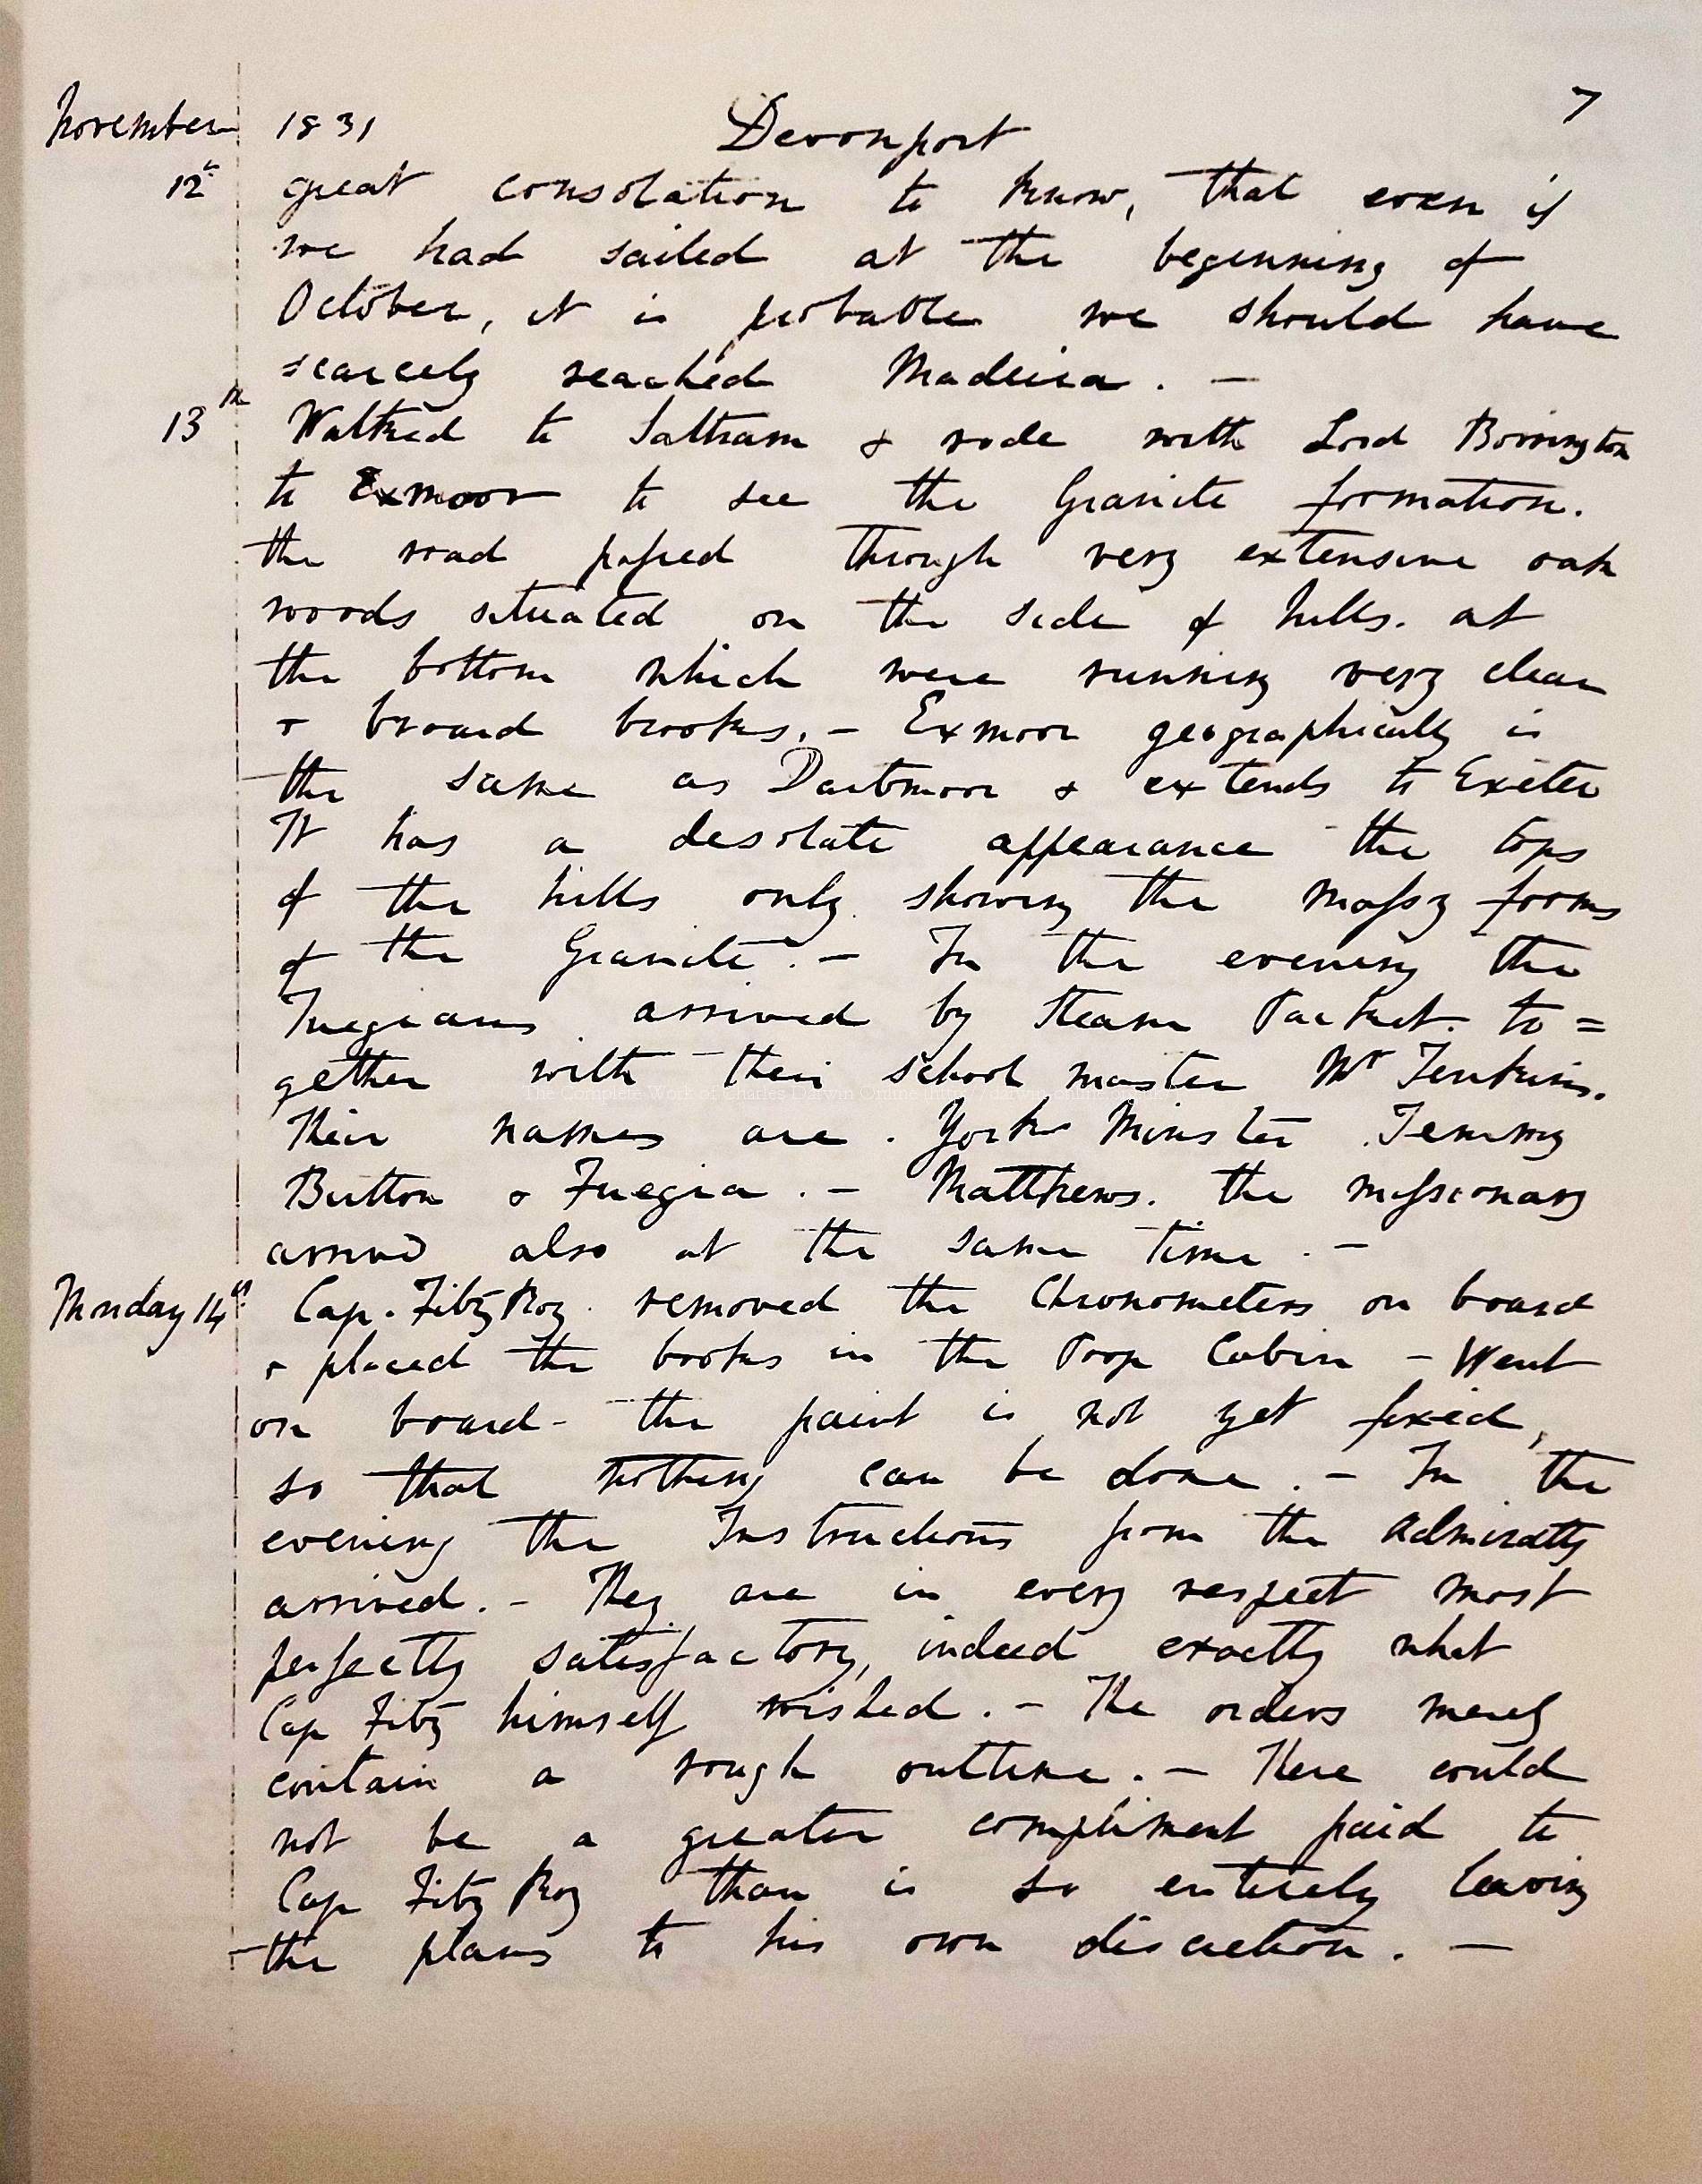 November 1831 Devonport 7
12th great consolation to know, that even if
we had sailed at the beginning of
October, it is probable we should have
scarcely reached Madeira. —
13th Walked to Saltram & rode with Lord Borrington
to Exmoor to see the Granite formation.
the road passed through very extensive oak
woods situated on the side of hills. at
the bottom which were running very clear
& broard brooks. — Exmoor geographically is
the same as Dartmoor & extends to Exeter
It has a desolate appearance the tops
of the hills only showing the massy forms
of the Granite. — In the evening the
Fuegians arrived by Steam Packet. to=
gether with their school master Mr Jenkins.
Their names are. York Minster Jemmy
Button & Fuegia. — Matthews. the missionary
arrived also at the same time. —
Monday 14th Cap. FitzRoy. removed the Chronometers on board
& placed the books in the Poop Cabin — Went
on board - the paint is not yet fixed,
so that nothing can be done. — In the
evening the Instructions from the Admiralty
arrived. — They are in every respect most
perfectly satisfactory, indeed exactly what
Cap Fitz himself wished. — The orders merely
contain a rough outline. — There could
not be a greater compliment paid to
Cap FitzRoy than is so entirely leaving
the plans to his own discretion. —